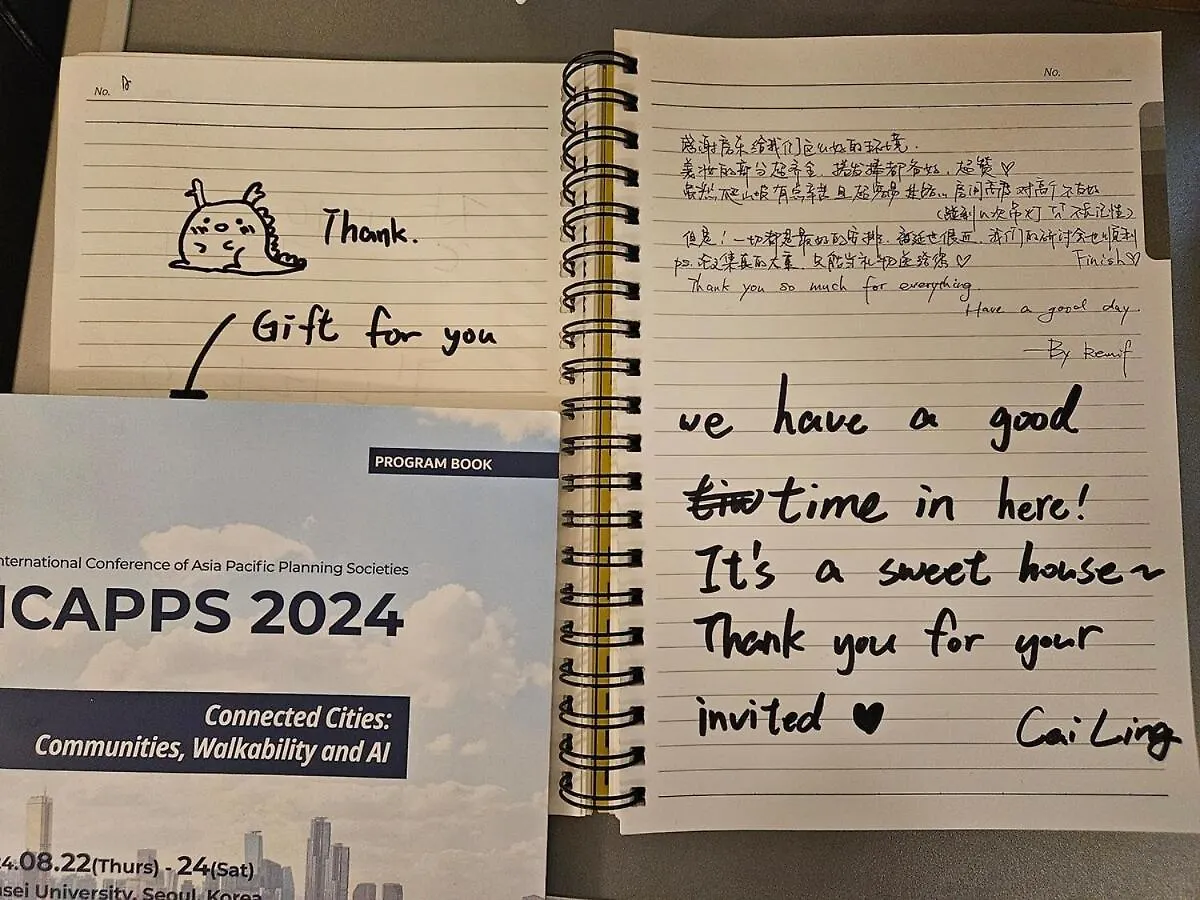 No.
Thank.
Gift for you
PROGRAM BOOK
nternational Conference of Asia Pacific Planning Societies
ICAPPS 2024
Connected Cities:
Communities, Walkability and AI
24.08.22(Thurs) - 24(Sat)
nsei University, Seoul, Korea
No.
感谢房东给我们这么好的环境.
美妆的部分超齐全, 捲发棒都备好, 超赞♡
虽然爬山坡有点辛苦且 房间 对高个不友好
(撞到n次吊灯 不长记性)
但是! 一切都是最好的安排, 也很近, 我们的研讨会也顺利
Finish♡
ps. 论文集真的太重, 只能当礼物送给您♡
Thank you so much for everything.
Have a good day.
—By
we have a good
time in here!
It's a sweet house~
Thank you for your
invited ♥
Cai Ling